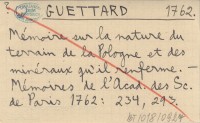 GUETTARD 1762.
Mémoire sur la nature du
terrain de la Pologne et des
minéraux qu'il renferme. —
Mémoires de l'Acad. des Sc.
de Paris 1762: 234, 293.